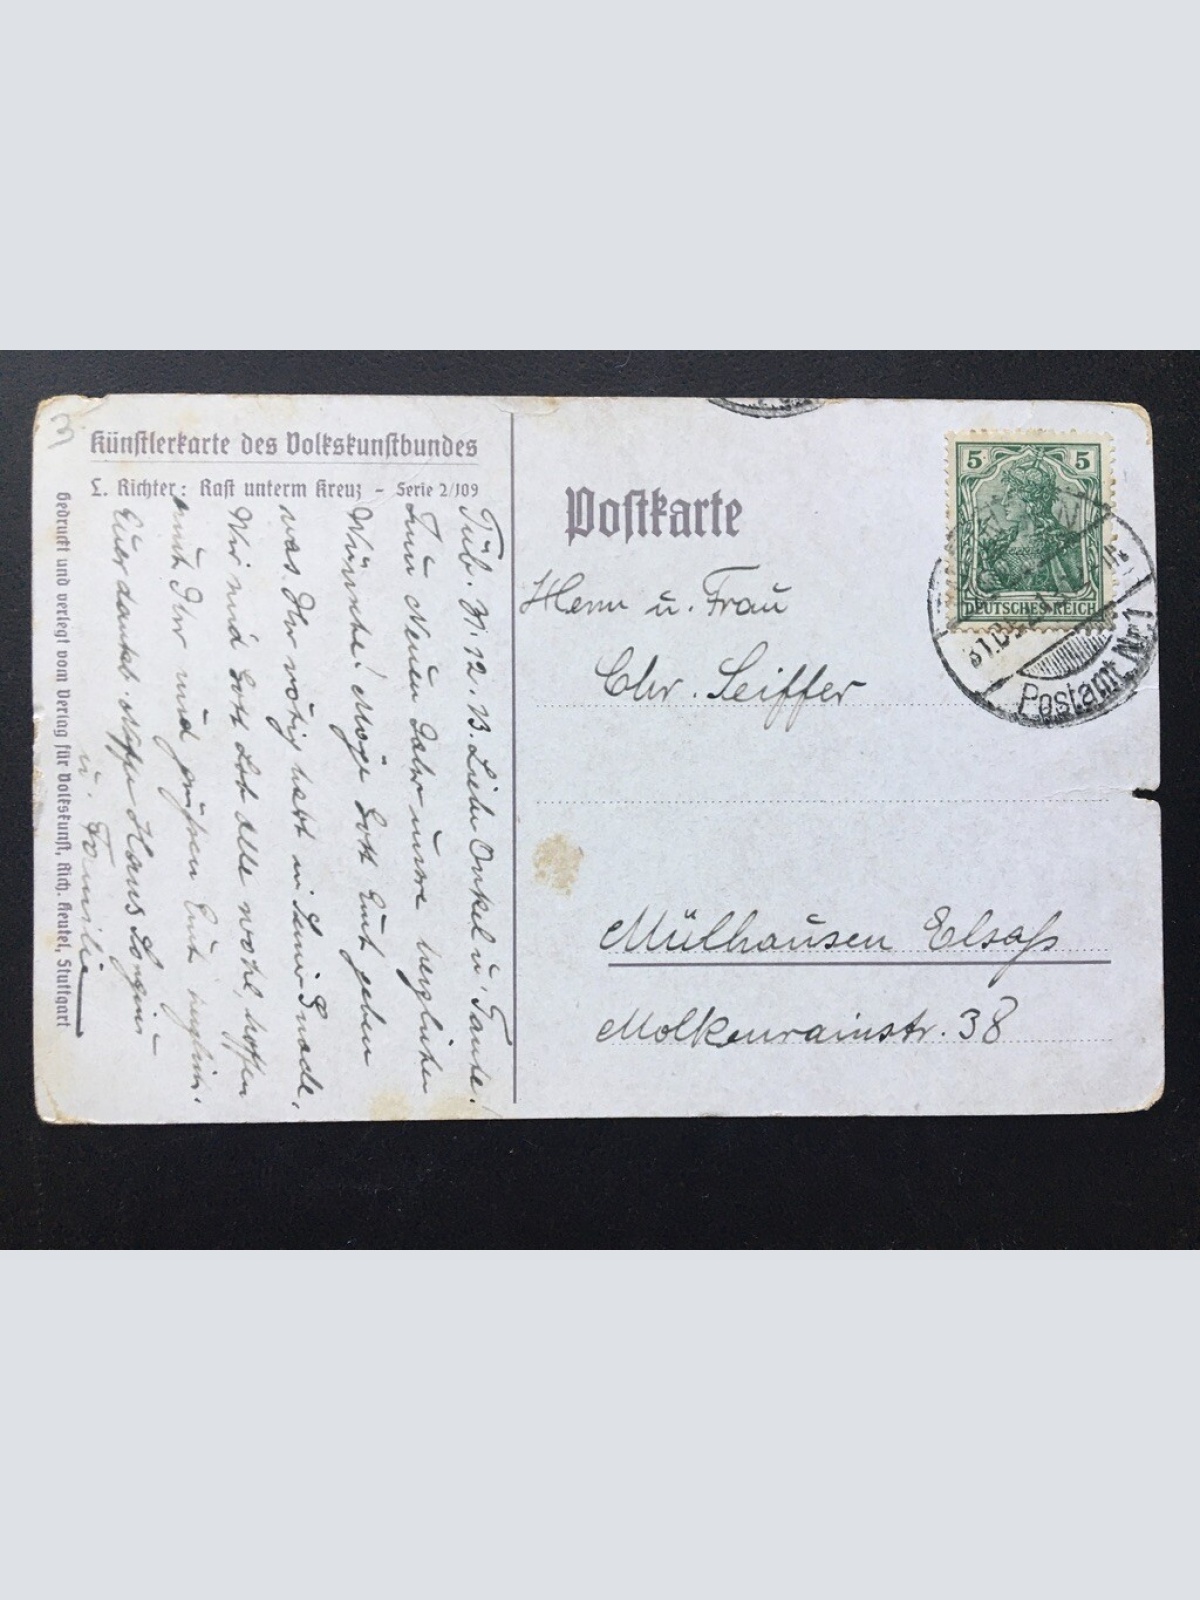 Künstlerkarte des Volkskunstbundes
L. Richter: Rast unterm Kreuz - Serie 2/109
Tüb. 31.12.13. Liebe Onkel u. Tante!
Zum Neuen Jahr unsre herzlichen
Wünsche! Möge Gott Euch geben
was Ihr nötig habt in Seiner Gnade.
Wir sind Gott Lob alle wohl, hoffen
auch Ihr und grüßen Euch herzlich.
Euer dankb. Neffe Hans
u. Familie
Gedruckt und verlegt vom Verlag für Volkskunst, Rich. Keutel, Stuttgart
Postkarte
Herrn u. Frau
Chr. Seiffer
Mülhausen Elsaß
Molkenrainstr. 38
5 5
DEUTSCHES REICH
Postamt Nr. 1